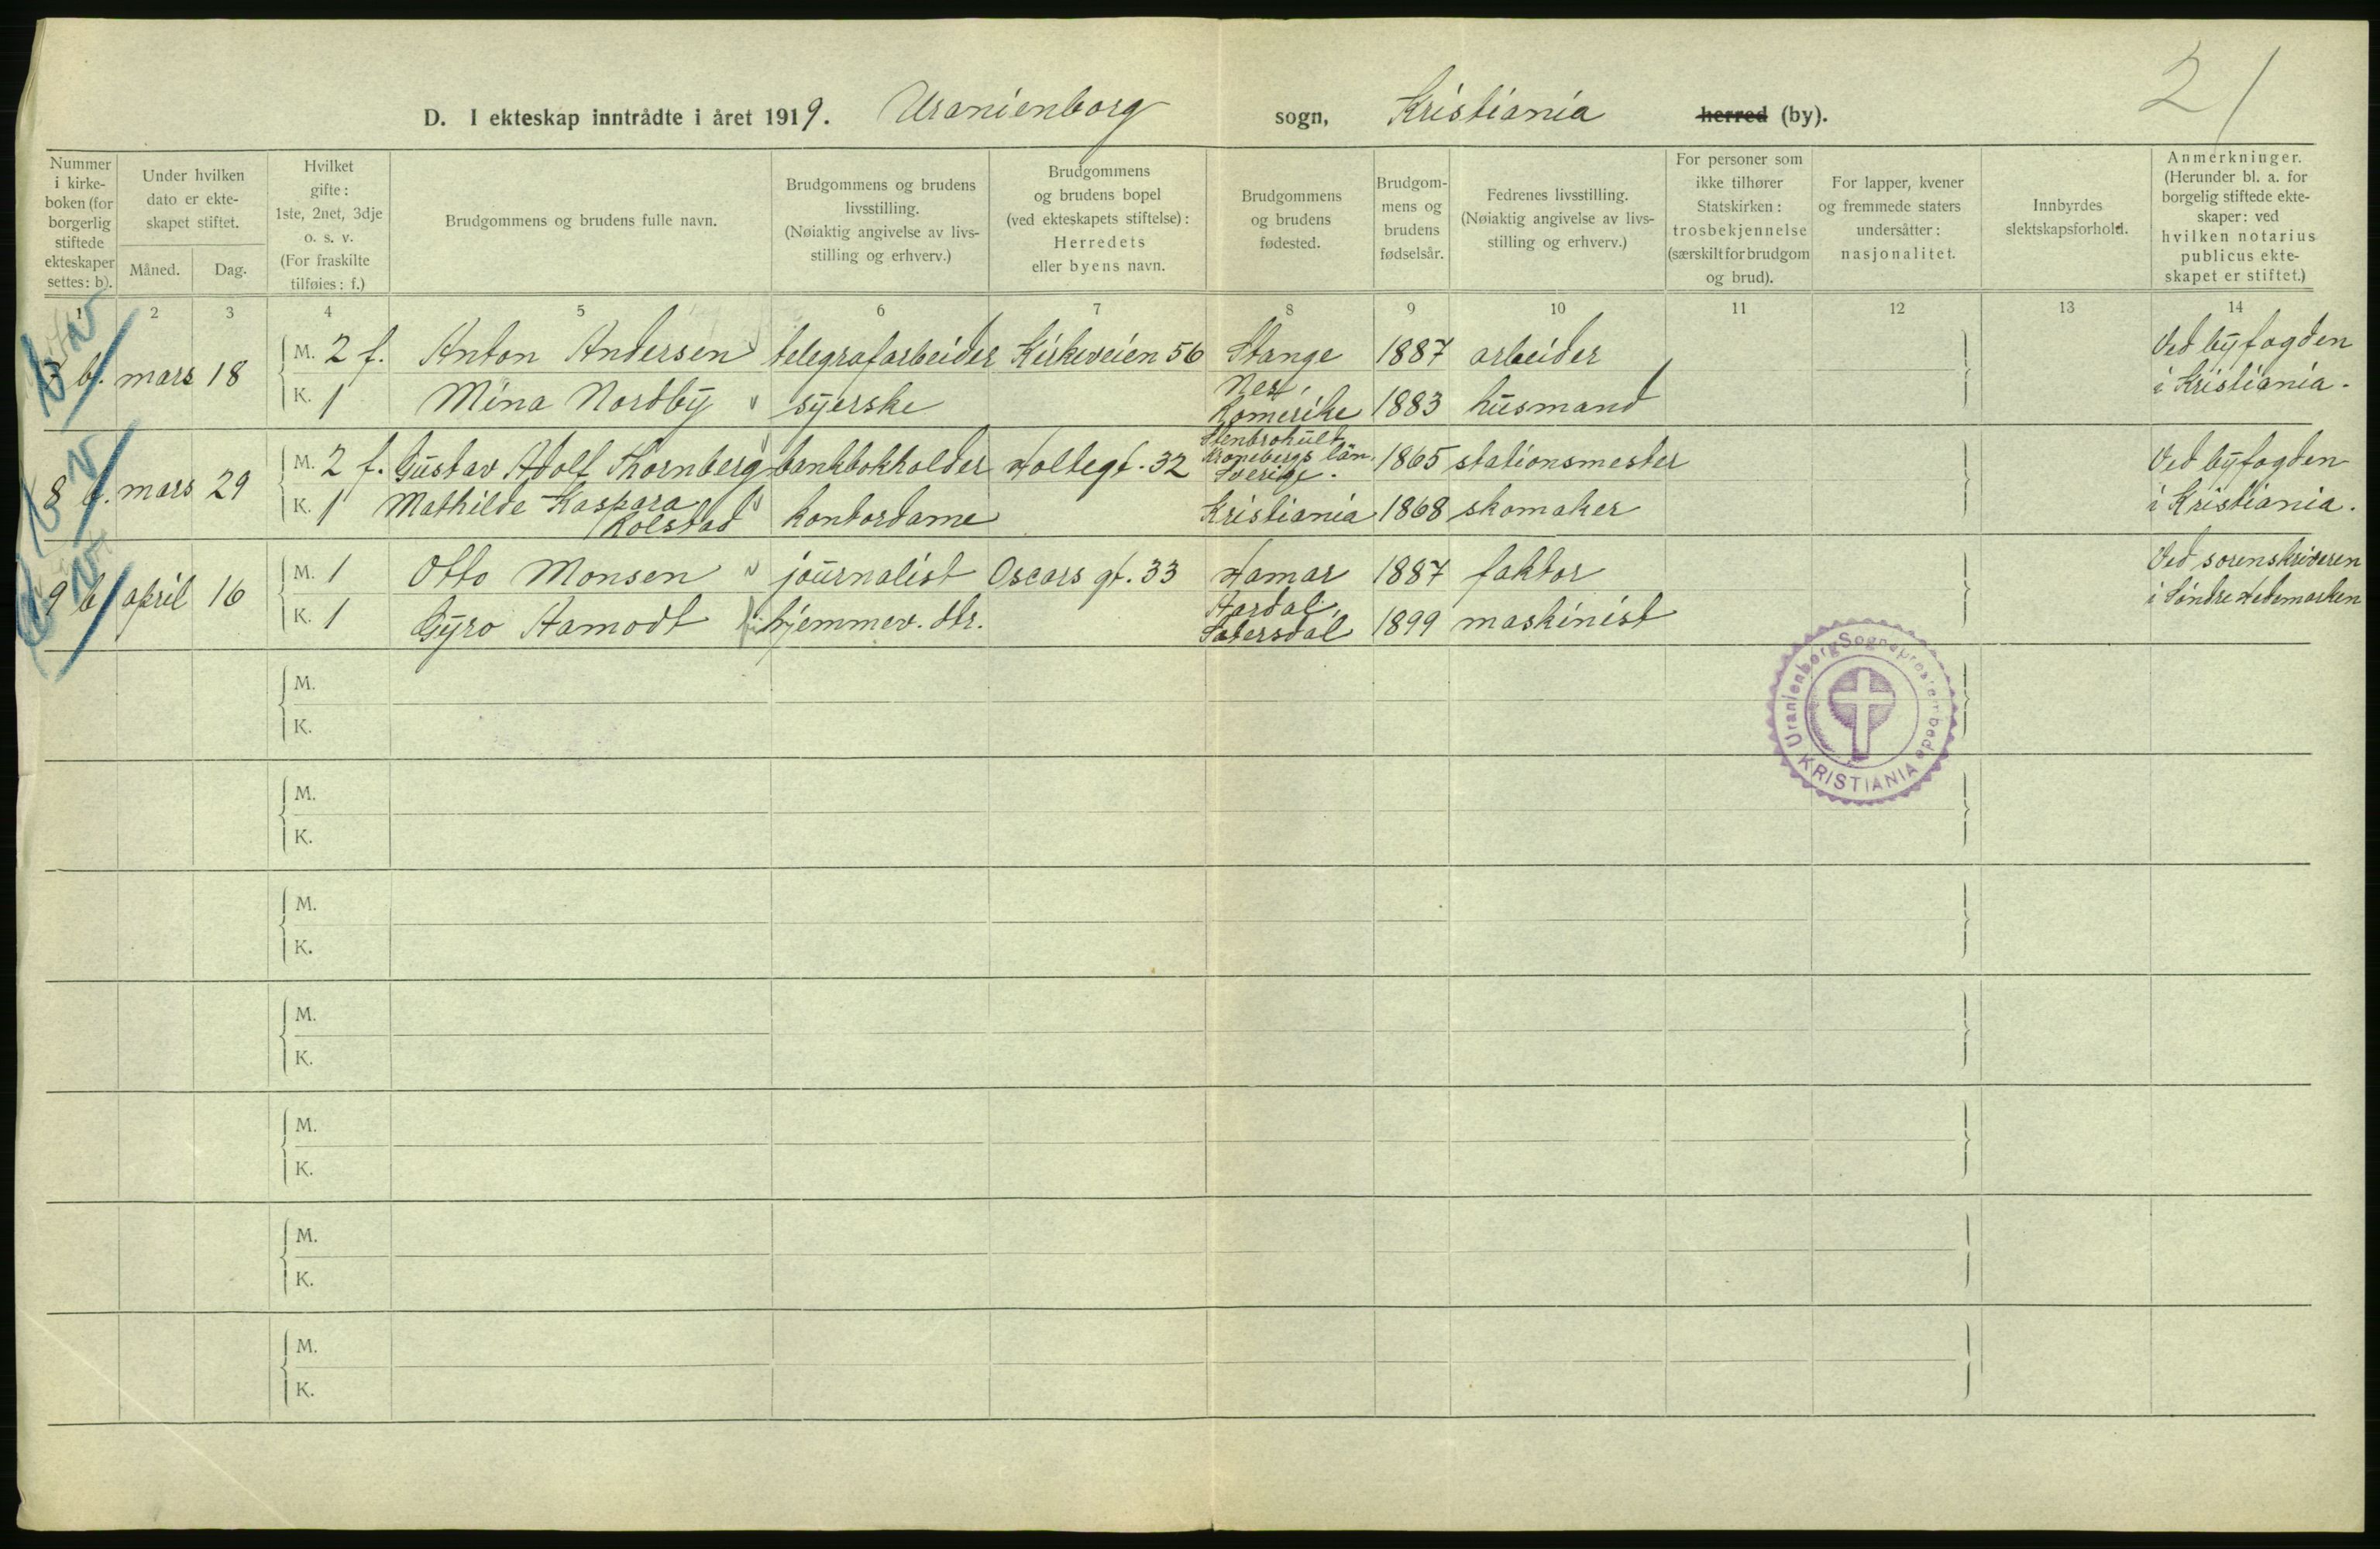 21
D. I ekteskap inntrådte i året 1919. Uranienborg sogn, Kristiania herred (by).
Nummer i kirke-boken (for borgerlig stiftede ekteskaper settes: b).
Under hvilken dato er ekte-skapet stiftet.
Måned. Dag.
Hvilket gifte: 1ste, 2net, 3dje o. s. v. (For fraskilte tilføies: f.)
Brudgommens og brudens fulle navn.
Brudgommens og brudens livsstilling. (Nøiaktig angivelse av livs-stilling og erhverv.)
Brudgommens og brudens bopel (ved ekteskapets stiftelse): Herredets eller byens navn.
Brudgommens og brudens fødested.
Brudgom-mens og brudens fødselsår.
Fedrenes livsstilling. (Nøiaktig angivelse av livs-stilling og erhverv.)
For personer som ikke tilhører Statskirken: trosbekjennelse (særskilt for brudgom og brud).
For lapper, kvener og fremmede staters undersåtter: nasjonalitet.
Innbyrdes slektskapsforhold.
Anmerkninger. (Herunder bl. a. for borgerlig stiftede ekte-skaper: ved hvilken notarius publicus ekte-skapet er stiftet.)
1 2 3 4 5 6 7 8 9 10 11 12 13 14
7 b. mars 18
M. 2 f. Anton Andersen telegrafarbeider Kirkeveien 56 Stange 1887 arbeider Ved byfogden
K. 1 Mina Nordby syerske Nes, Romerike 1883 husmand i Kristiania.
8 b. mars 29
M. 2 f. Gustav Adolf Thornberg bankbokholder Holtegt. 32 Stenbrohult Kronobergs län. Sverige. 1865 stationsmester Ved byfogden
K. 1 Mathilde Kaspara Kolstad kontordame Kristiania 1868 skomaker i Kristiania.
9 b. april 16
M. 1 Otto Monsen journalist Oscars gt. 33 Hamar 1887 faktor Ved sorenskriveren
K. 1 Gyro Aamodt hjemmev. dtr. Aardal, Sætersdal 1899 maskinist i Søndre Hedemarken
M.
K.
M.
K.
M.
K.
M.
K.
M.
K.
M.
K.
M.
K.
Uranienborg Sogneprestembede
KRISTIANIA